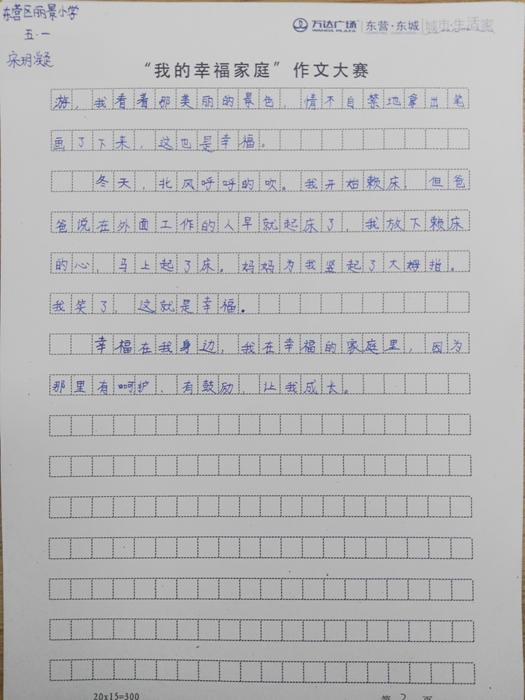 东营区丽景小学
五.一
宋玥凝
万达广场 东营·东城 城市·生活家
WANDA PLAZA
“我的幸福家庭”作文大赛
游，我看着那美丽的景色，情不自禁地拿出笔
画了下来，这也是幸福。
冬天，北风呼呼的吹。我开始赖床，但爸
爸说在外面工作的人早就起床了，我放下赖床
的心，马上起了床。妈妈为我竖起了大姆指。
我笑了，这就是幸福。
幸福在我身边，我在幸福的家庭里，因为
那里有呵护、有鼓励，让我成长。
20x15=300
第 2 页